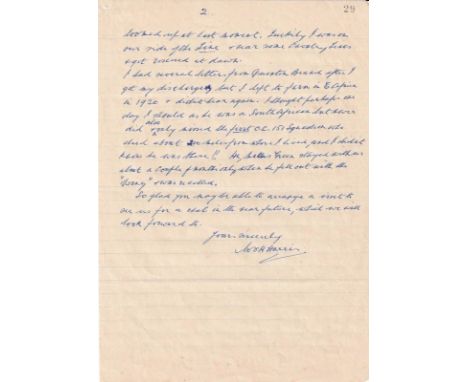 2.
29
loomed up at last moment. Luckily I was on
our side of the Line & near some Cavalry lines
& got rescued at dawn.
I had several letters from Quintin Brand after I
got my discharge, but I left to farm in E. Africa
in 1920 & didnt hear again. I thought perhaps one
day I should as he was a South African but never
did
also
the first O.C. 151 Squadron who
died about miles from where I lived, and I didnt
know he was there!! He, Green stayed with us
about a couple of months only when he fell out with the
"Army" & was recalled.
So glad you may be able to arrange a visit to
see us for a chat in the near future, which we will
look forward to.
Yours sincerely
Harris